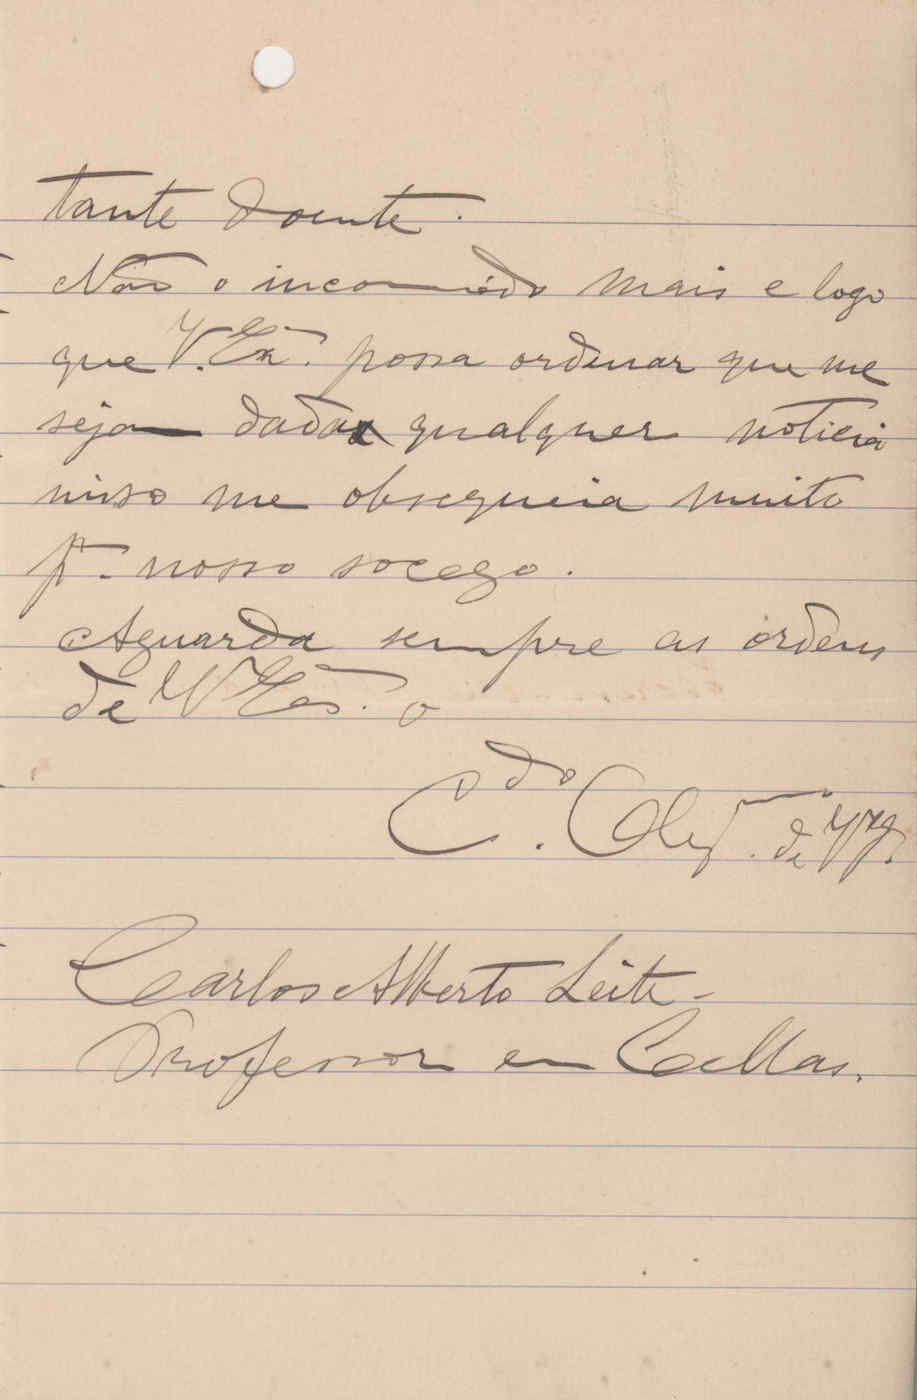 tante doente.
Não o incomodo mais e logo
que V. Exª. possa ordenar que me
seja dada qualquer noticia
nisso me obsequeia muito
pª. nosso socego.
Aguarda sempre as ordens
de V Exas. o
C.do Obg. de V
Carlos Alberto Leite-
Professor em Cellas.